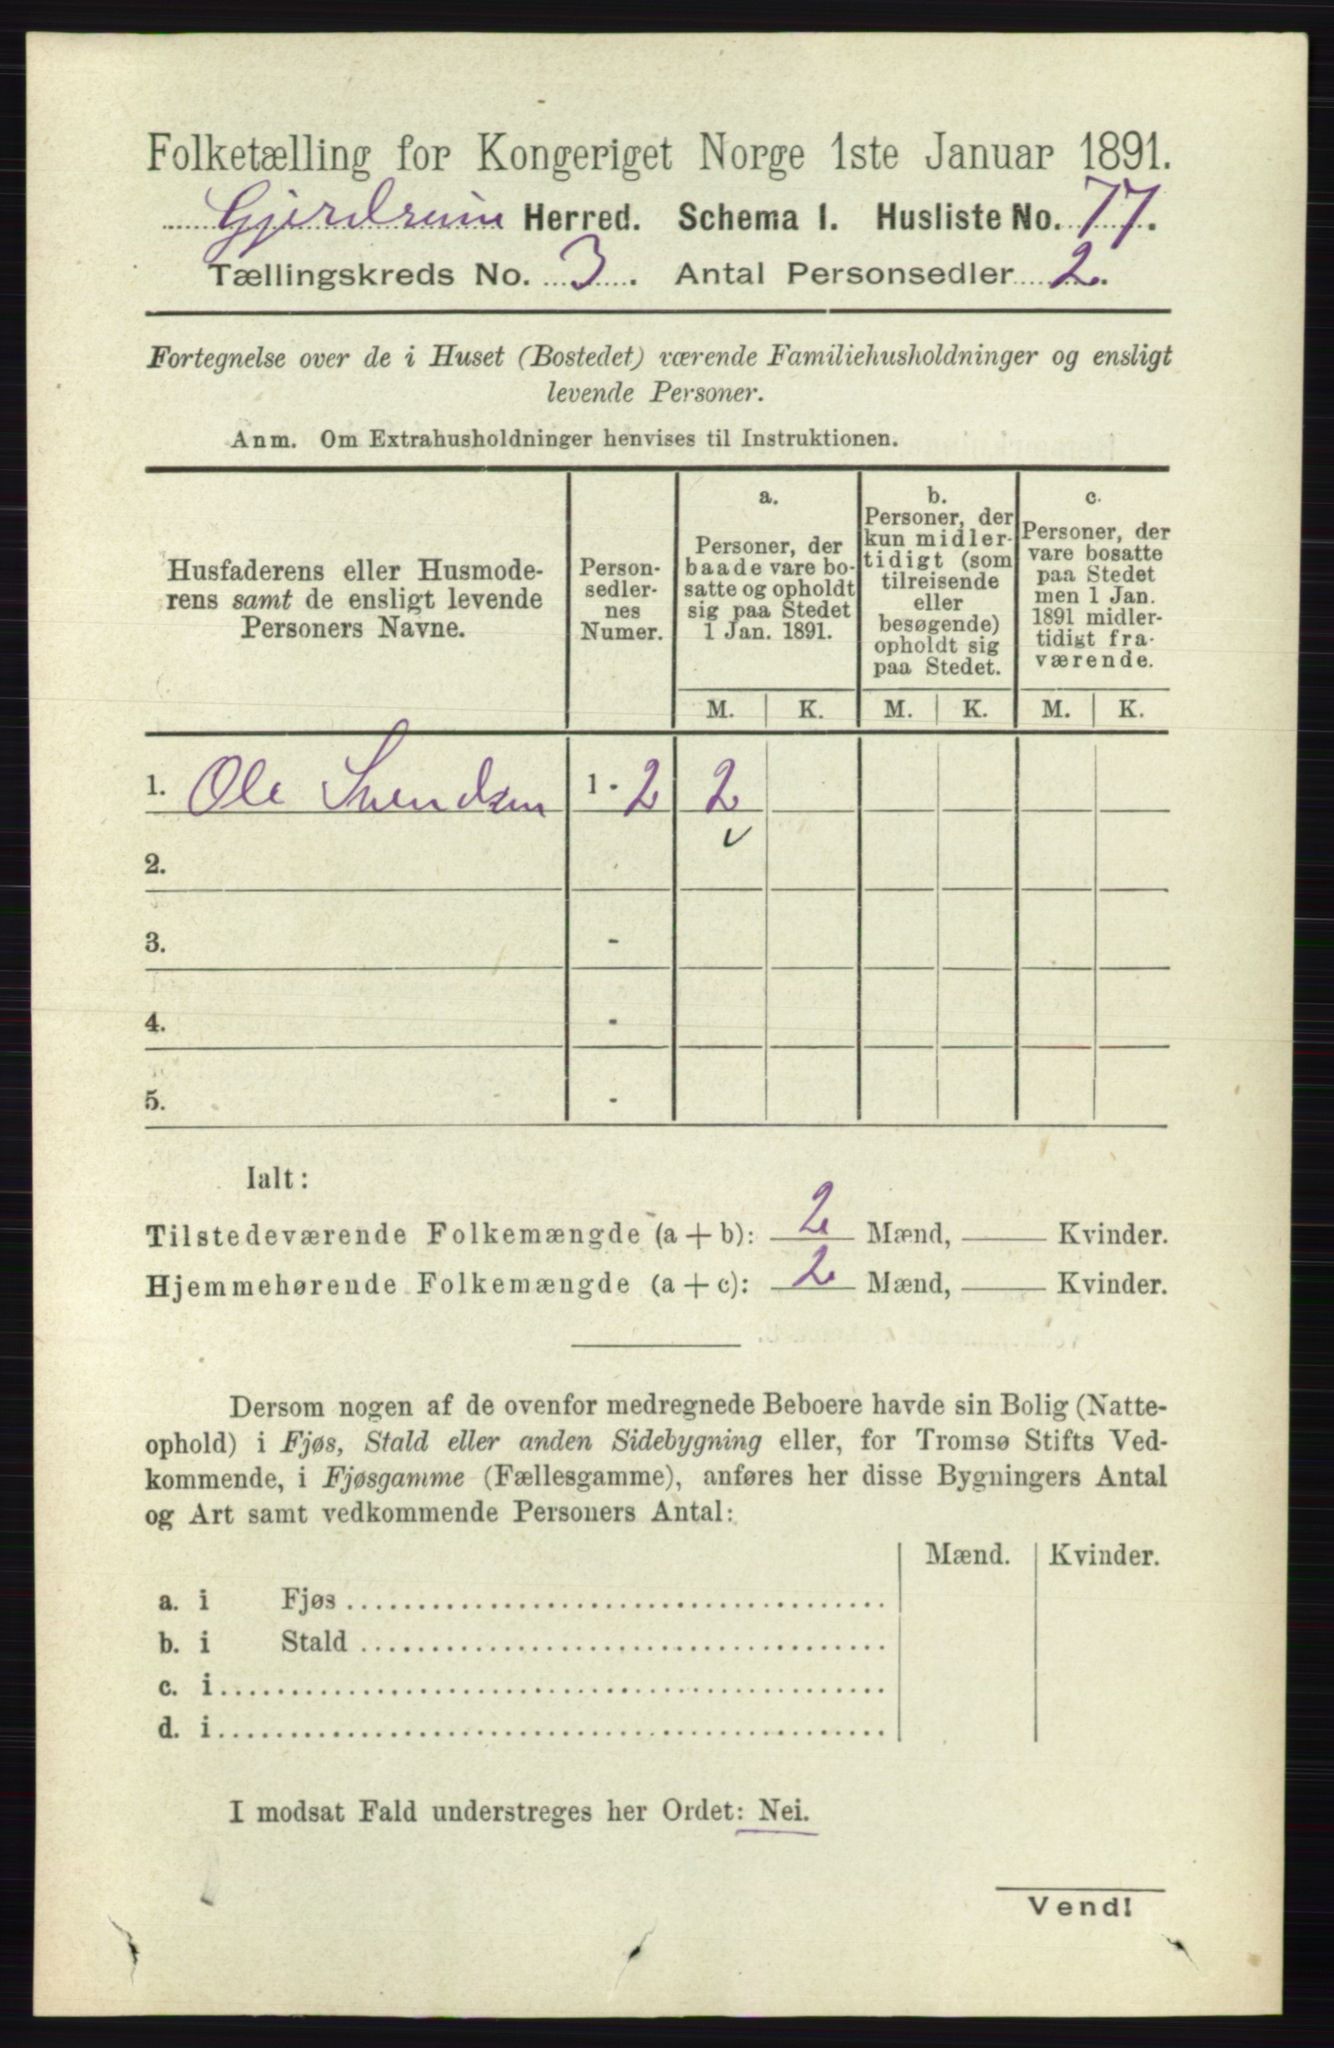 Folketælling for Kongeriget Norge 1ste Januar 1891.
Gjerdrum Herred. Schema 1. Husliste No. 77.
Tællingskreds No. 3. Antal Personsedler 2.
Fortegnelse over de i Huset (Bostedet) værende Familiehusholdninger og ensligt
levende Personer.
Anm. Om Extrahusholdninger henvises til Instruktionen.
Husfaderens eller Husmode-
rens samt de ensligt levende
Personers Navne.
Person-
sedler-
nes
Numer.
a.
Personer, der
baade vare bo-
satte og opholdt
sig paa Stedet
1 Jan. 1891.
b.
Personer, der
kun midler-
tidigt (som
tilreisende
eller
besøgende)
opholdt sig
paa Stedet.
c.
Personer, der
vare bosatte
paa Stedet
men 1 Jan.
1891 midler-
tidigt fra-
værende.
M. K. M. K. M. K.
1. Ole Svendsen 1 - 2 2
2.
3. -
4. -
5. -
Ialt:
Tilstedeværende Folkemængde (a + b): 2 Mænd, Kvinder.
Hjemmehørende Folkemængde (a + c): 2 Mænd, Kvinder.
Dersom nogen af de ovenfor medregnede Beboere havde sin Bolig (Natte-
ophold) i Fjøs, Stald eller anden Sidebygning eller, for Tromsø Stifts Ved-
kommende, i Fjøsgamme (Fællesgamme), anføres her disse Bygningers Antal
og Art samt vedkommende Personers Antal:
Mænd. Kvinder.
a. i Fjøs
b. i Stald
c. i
d. i
I modsat Fald understreges her Ordet: Nei.
Vend!